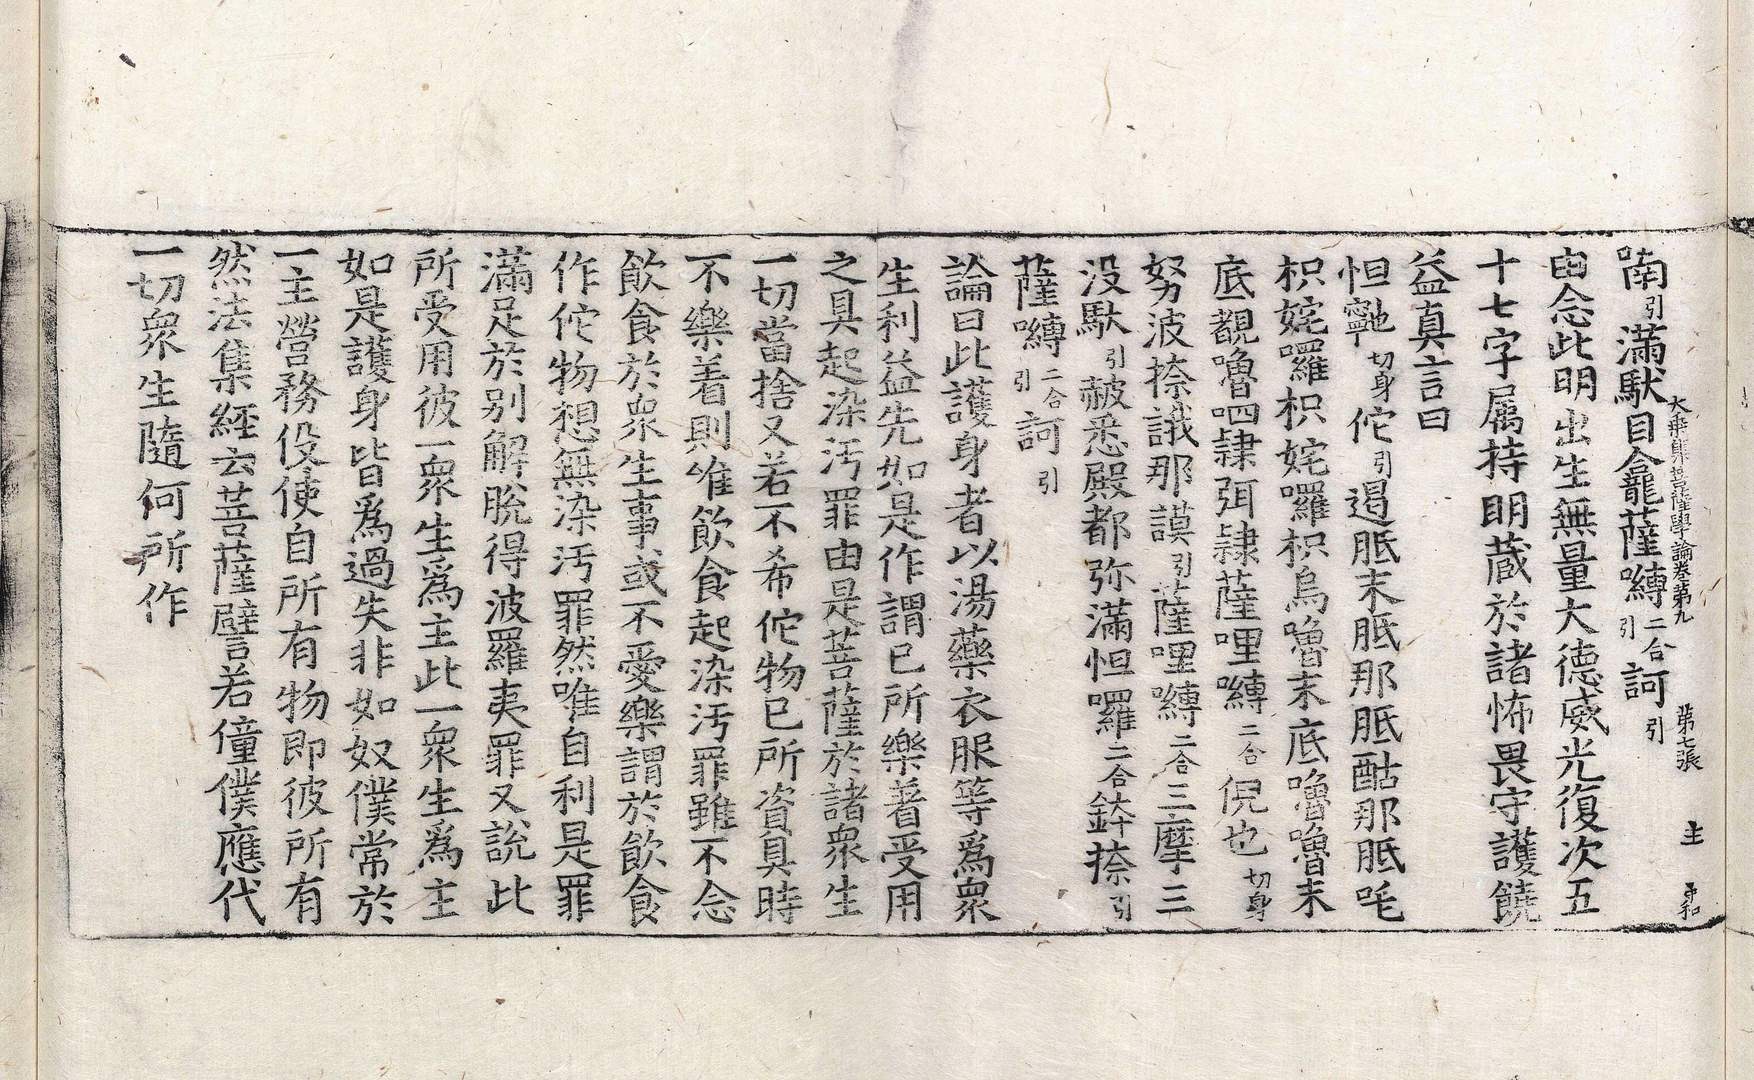 大乘集菩薩學論卷第九　第七張　主
喃引滿馱目龕薩嚩二合引訶引
由念此明出生無量大德威光復次五
十七字属持明蔵於諸怖畏守護饒
益真言曰
怛切身佗引遏胝末胝那胝酤那胝吒
枳姹囉枳姹囉枳烏嚕末底嚕嚕末
底覩嚕呬隷弭隷薩哩嚩二合倪也切身
努波捺誐那謨引薩哩嚩二合三摩三
没馱引赧悉殿都弥滿怛囉二合鉢捺引
薩嚩二合引訶引
論曰此護身者以湯藥衣服等爲衆
生利益先如是作謂已所樂著受用
之具起染汚罪由是菩薩於諸衆生
一切當捨又若不希佗物已所資具時
不樂着則唯飲食起染汚罪雖不念
飲食於衆生事或不愛樂謂於飲食
作佗物想無染汚罪然唯自利是罪
滿足於別解脫得波羅夷罪又說此
所受用彼一衆生爲主此一衆生爲主
如是護身皆爲過失非如奴僕常於
一主營務役使自所有物即彼所有
然法集經云菩薩譬若僮僕應代
一切衆生隨何所作